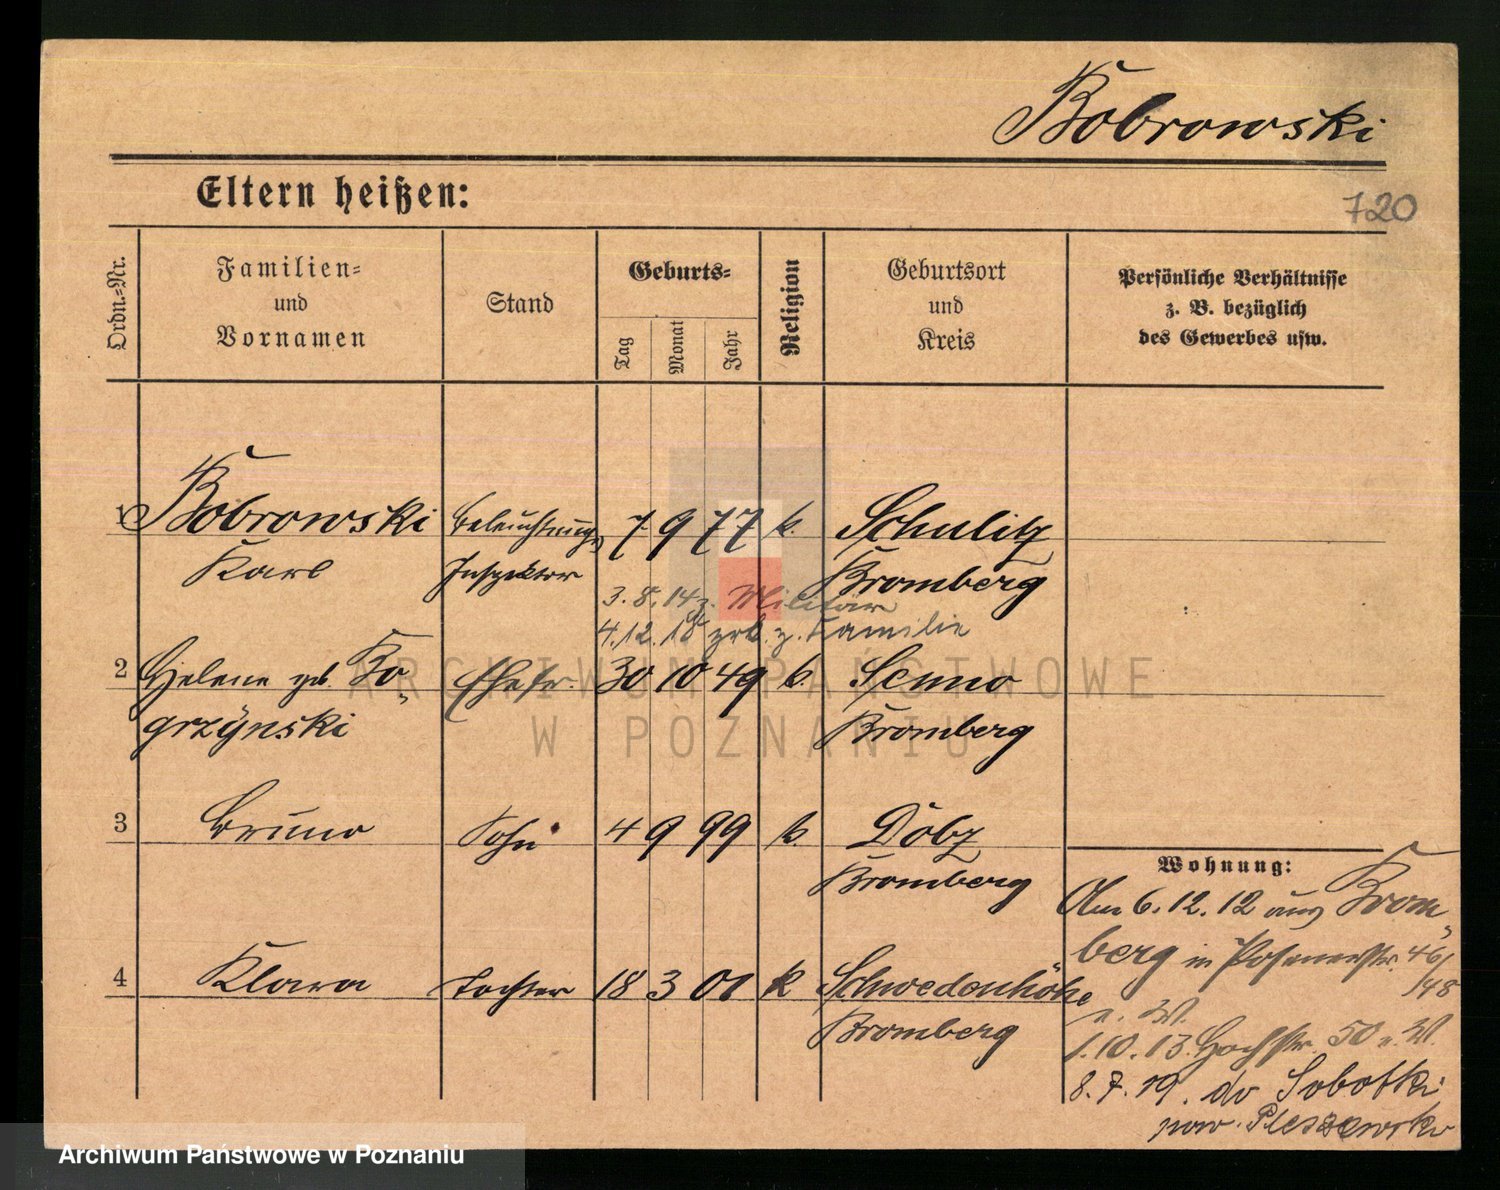 Bobrowski
Eltern heißen:
720
Ordn.=Nr.
Familien=
und
Vornamen
Stand
Geburts=
Tag
Monat
Jahr
Religion
Geburtsort
und
Kreis
Persönliche Verhältnisse
z. B. bezüglich
des Gewerbes usw.
1 Bobrowski Beleuchtungs 7 9 77 k. Schulitz
Karl Inspektor Bromberg
3. 8. 14 z. Militär
4. 12. 18 zrk. z. Familie
2 Helene geb. Ko- Ehefr. 30 10 79 k. Senno
grzynski Bromberg
3 Bruno Sohn 4 9 99 k. Döbz
Bromberg
4 Klara Tochter 18 3 01 k Schwedenhöhe
Bromberg
Wohnung:
Am 6. 12. 12 aus Brom-
berg in Posenerstr. 46/
/48
u. W.
1. 10. 13. Hochstr. 50 u. W.
8. 7. 19. do Sobotki
pow. Pleszewski
ARCHIWUM PAŃSTWOWE
W POZNANIU
Archiwum Państwowe w Poznaniu